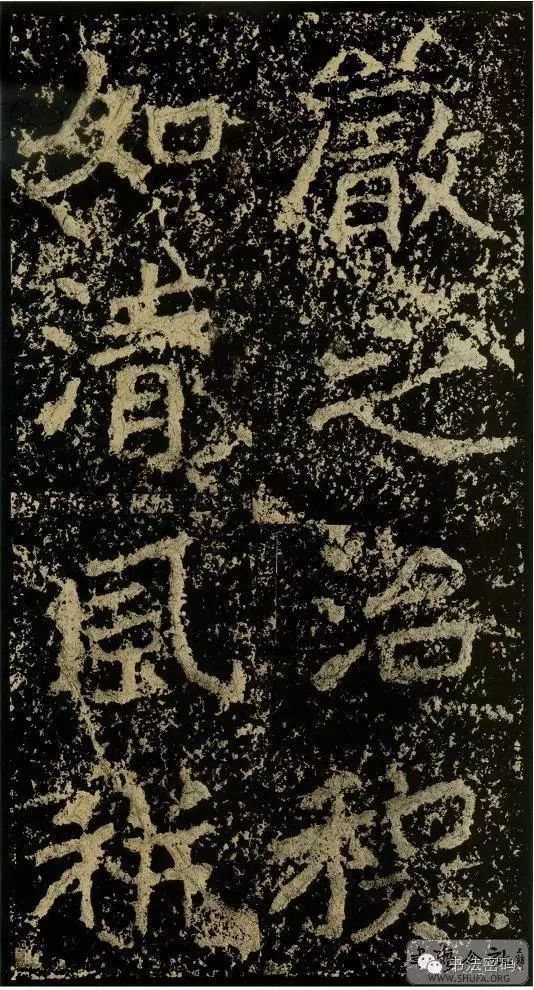 嚴之治穆
如清風
书法密码
WWW.SHUFA.ORG